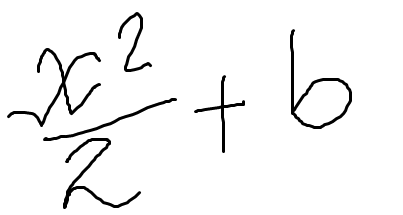 x²/2 + b